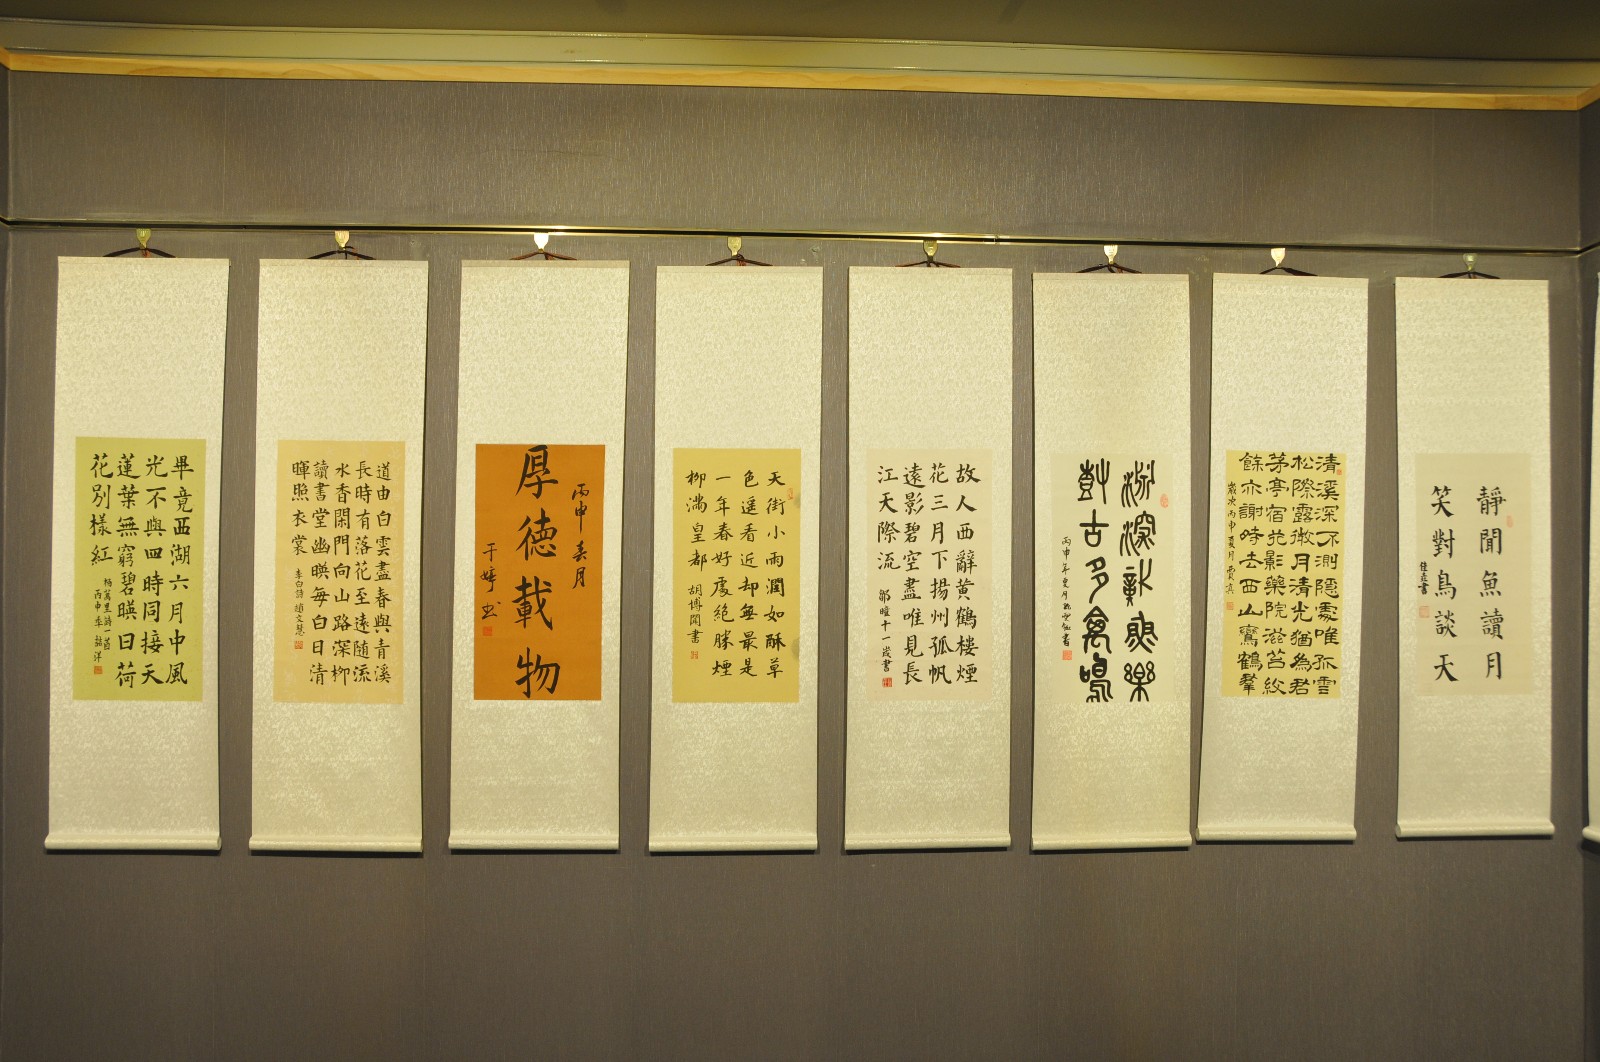 畢竟西湖六月中風
光不與四時同接天
蓮葉無窮碧暎日荷
花別樣紅
楊萬里詩一首
丙申年
道由白雲盡春與青溪
長時有落花至遠隨流
水香閑門向山路深柳
讀書堂幽暎每白日清
暉照衣裳
李白詩 趙文慧
丙申春月
厚德載物
于婷书
天街小雨潤如酥草
色遥看近却無最是
一年春好處絶勝煙
柳滿皇都
胡博閎書
故人西辭黄鶴楼煙
花三月下揚州孤帆
遠影碧空盡唯見長
江天際流
鄒瞳十一歲書
淵深知魚樂
樹古多禽鳴
丙申年夏月 書
清溪深不測隱處唯孤雲
松際露微月清光猶為君
茅亭宿花影藥院滋苔紋
餘亦謝時去西山鸞鶴羣
歲次丙申夏月賈真
靜聞魚讀月
笑對鳥談天
佳垚書